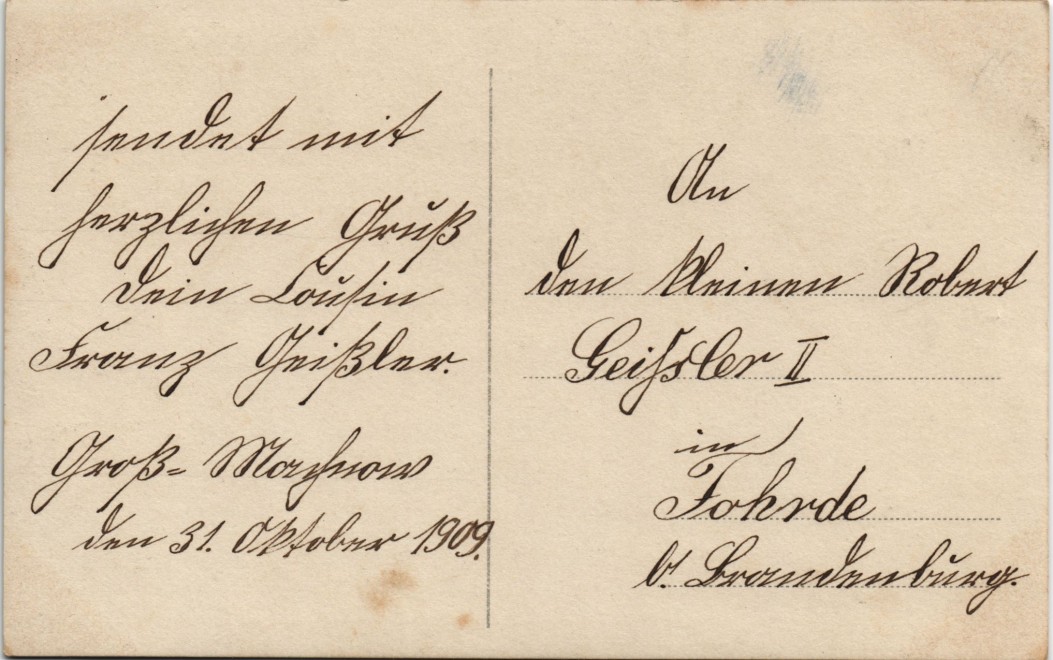 sendet mit
herzlichen Gruß
Dein Cousin
Franz Geißler.
Groß-Machnow
den 31. Oktober 1909.
An
den kleinen Robert
Geissler II
in
Fohrde
b. Brandenburg.